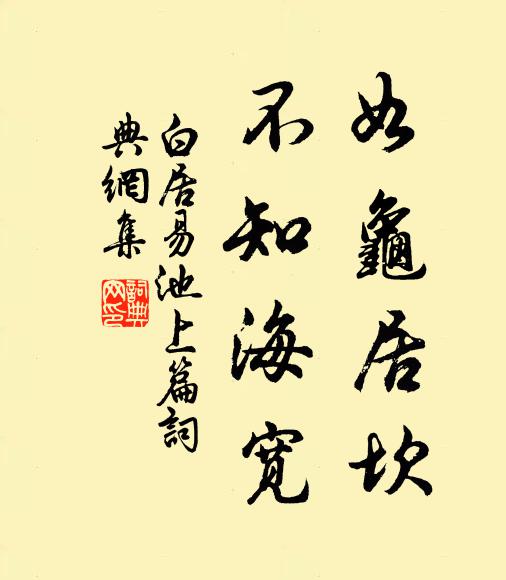 如龜居坎
不知海寬
白居易池上篇詞
典網集
詞典
网印